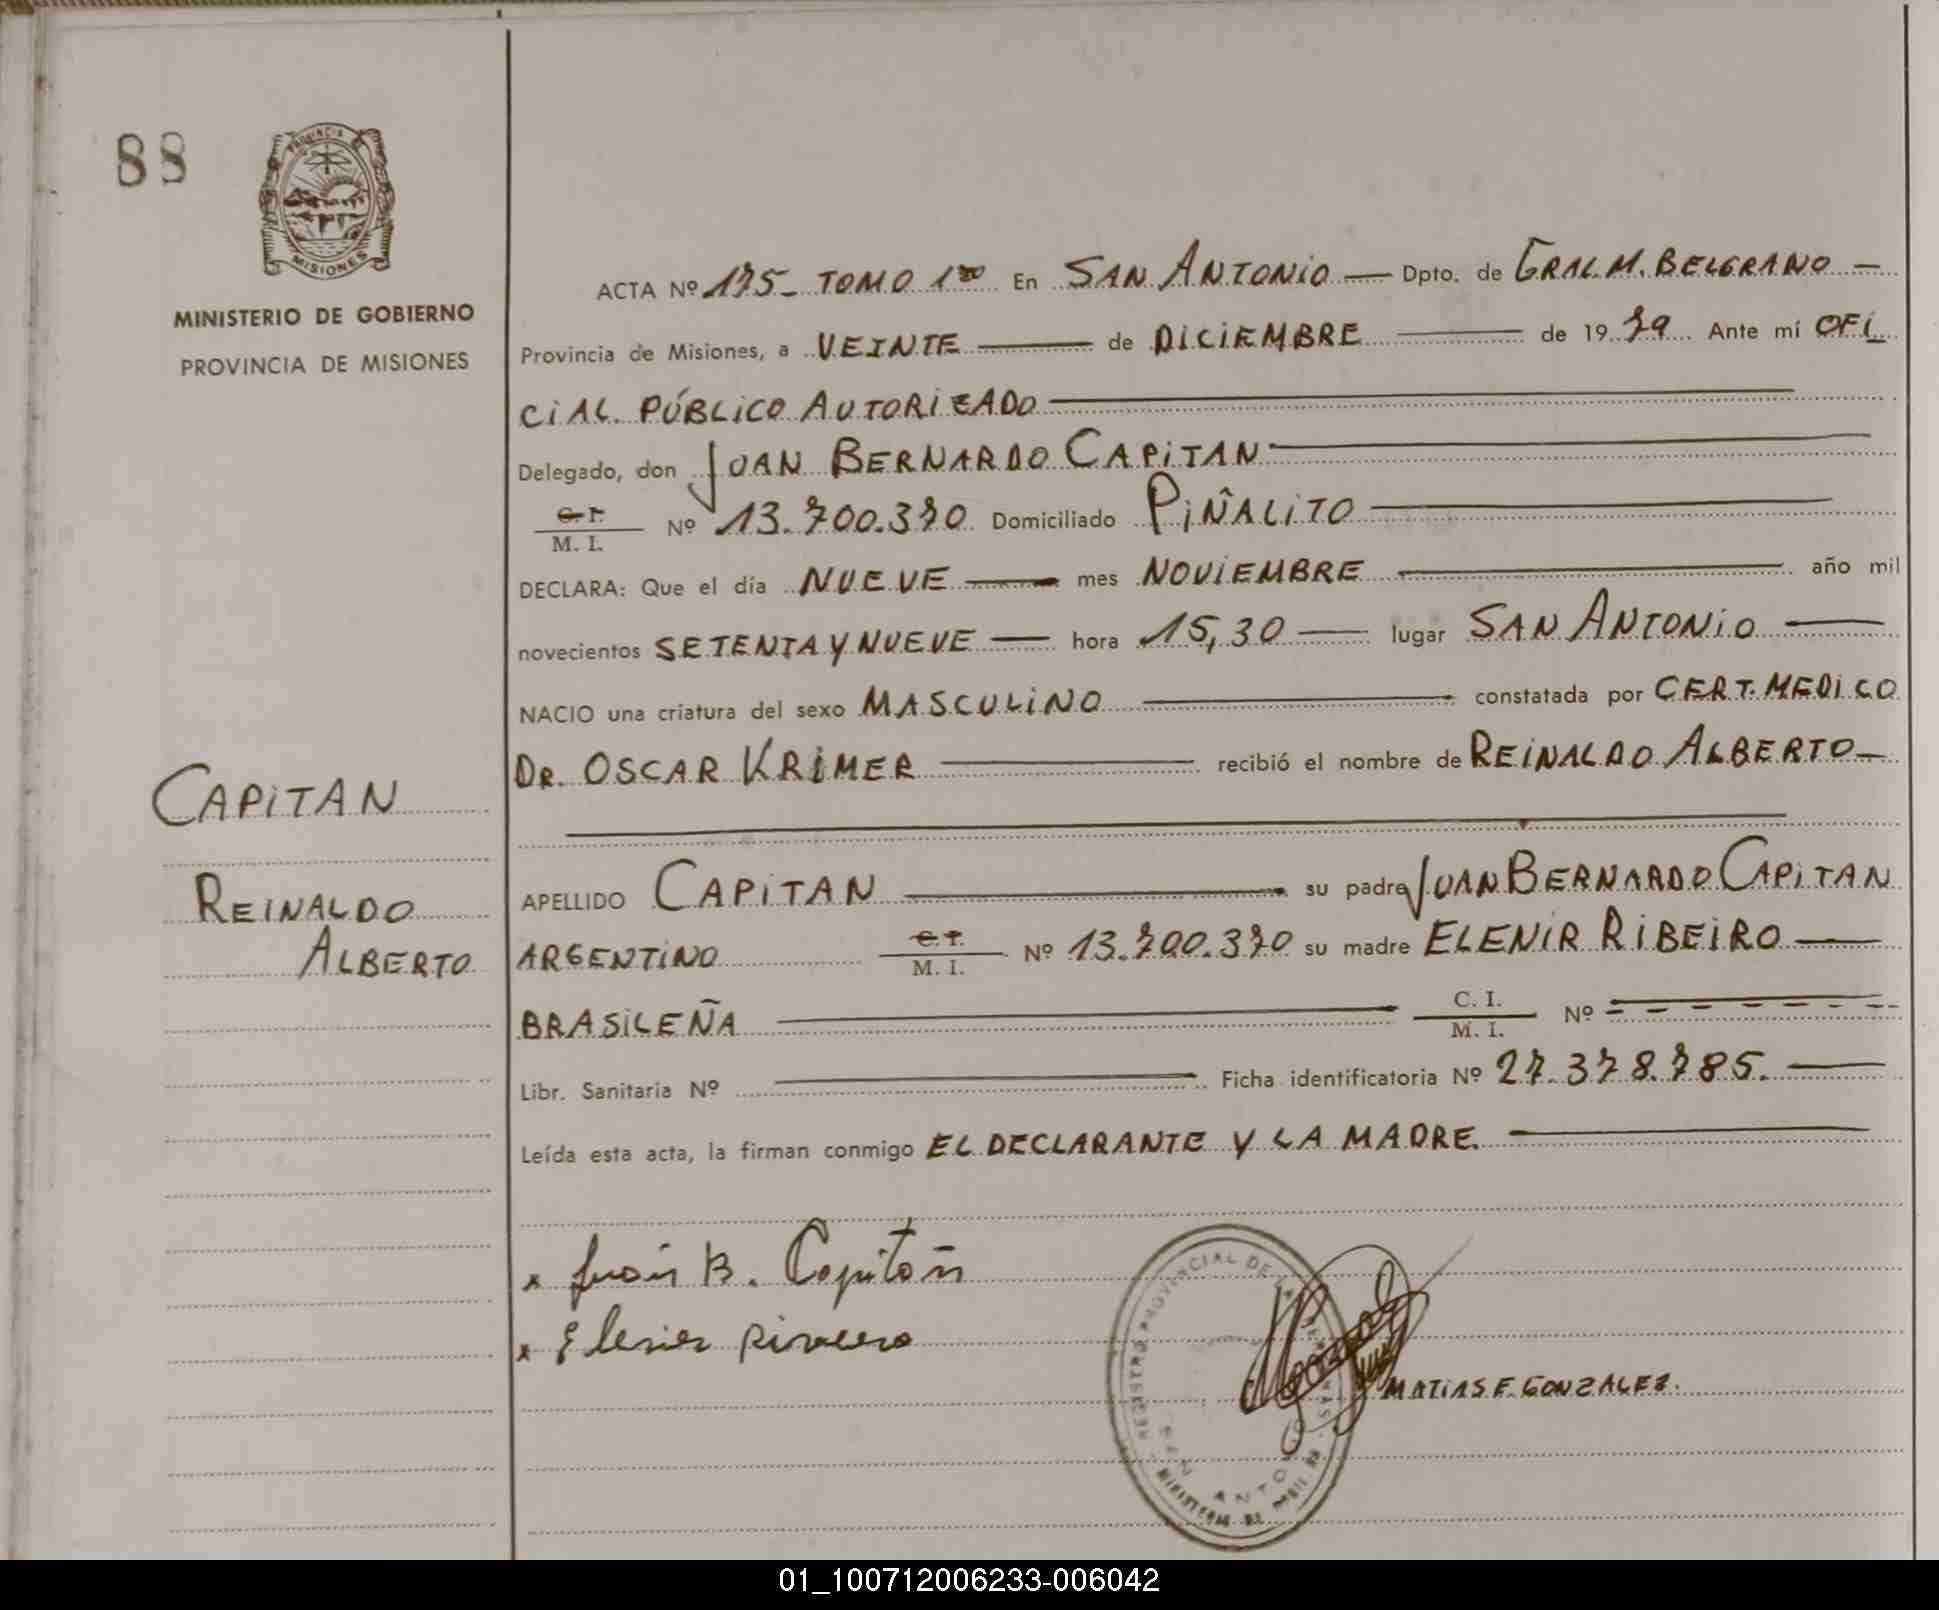 88
PROVINCIA
MISIONES
MINISTERIO DE GOBIERNO
PROVINCIA DE MISIONES
CAPITAN
REINALDO
ALBERTO
ACTA Nº 175- TOMO 1ro En SAN ANTONIO — Dpto. de GRAL. M. BELGRANO —
Provincia de Misiones, a VEINTE — de DICIEMBRE — de 1979 Ante mí OFI
CIAL PÚBLICO AUTORIZADO —
Delegado, don JUAN BERNARDO CAPITAN —
C. I. / M. I. Nº 13.700.370 Domiciliado PIÑALITO —
DECLARA: Que el día NUEVE — mes NOVIEMBRE — año mil
novecientos SETENTA Y NUEVE — hora 15,30 — lugar SAN ANTONIO —
NACIO una criatura del sexo MASCULINO — constatada por CERT. MEDICO
DR. OSCAR KRIMER — recibió el nombre de REINALDO ALBERTO —
APELLIDO CAPITAN — su padre JUAN BERNARDO CAPITAN
ARGENTINO C. I. / M. I. Nº 13.700.370 su madre ELENIR RIBEIRO —
BRASILEÑA — C. I. / M. I. Nº - - - - - -
Libr. Sanitaria Nº — Ficha identificatoria Nº 27.378.785. —
Leída esta acta, la firman conmigo EL DECLARANTE Y LA MADRE. —
x Juan B. Capitan
x Elenir
REGISTRO PROVINCIAL DE LAS PERSONAS
SAN ANTONIO
MATIAS F. GONZALEZ.
01_100712006233-006042